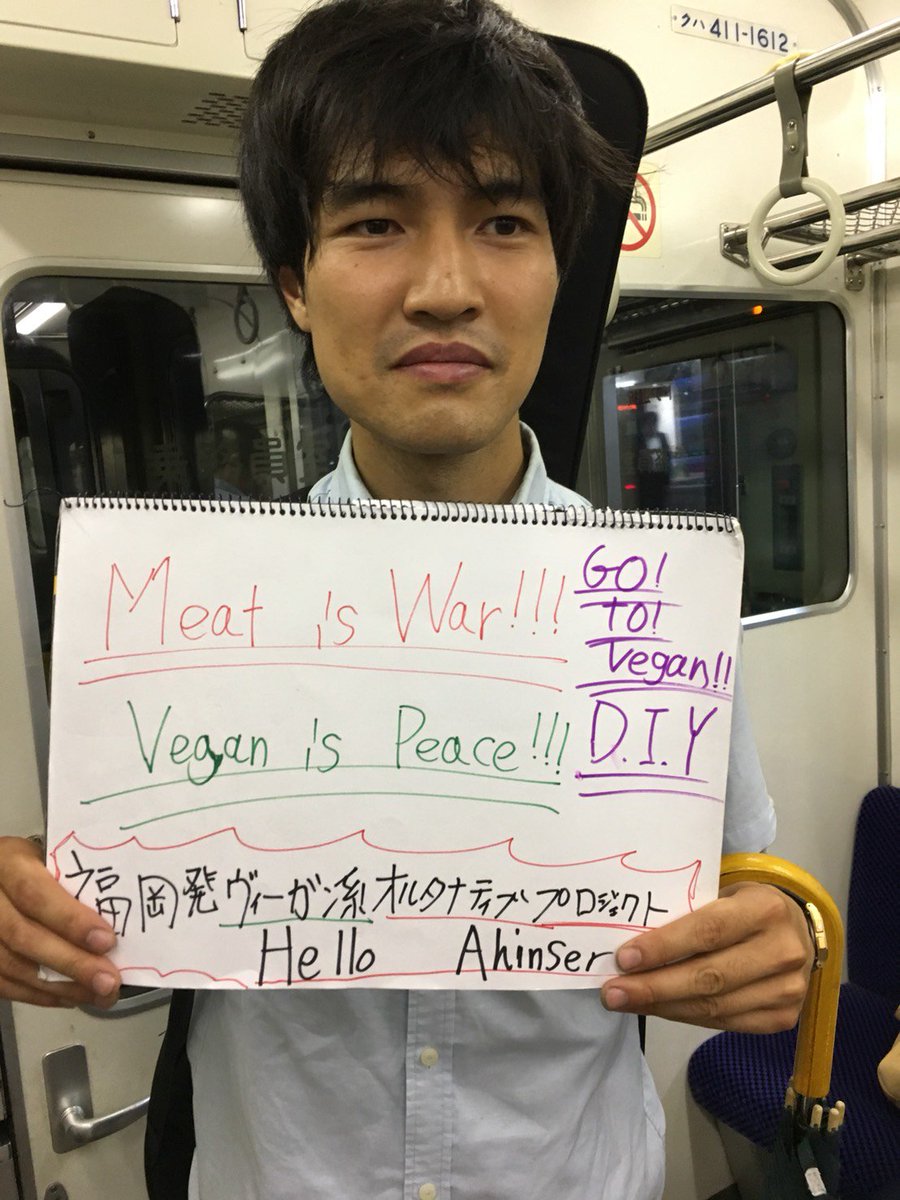 クハ411-1612
Meat is War!!!
Vegan is Peace!!!
GO!
TO!
Vegan!!
D.I.Y
福岡発ヴィーガン系オルタナティブプロジェクト
Hello Ahinser